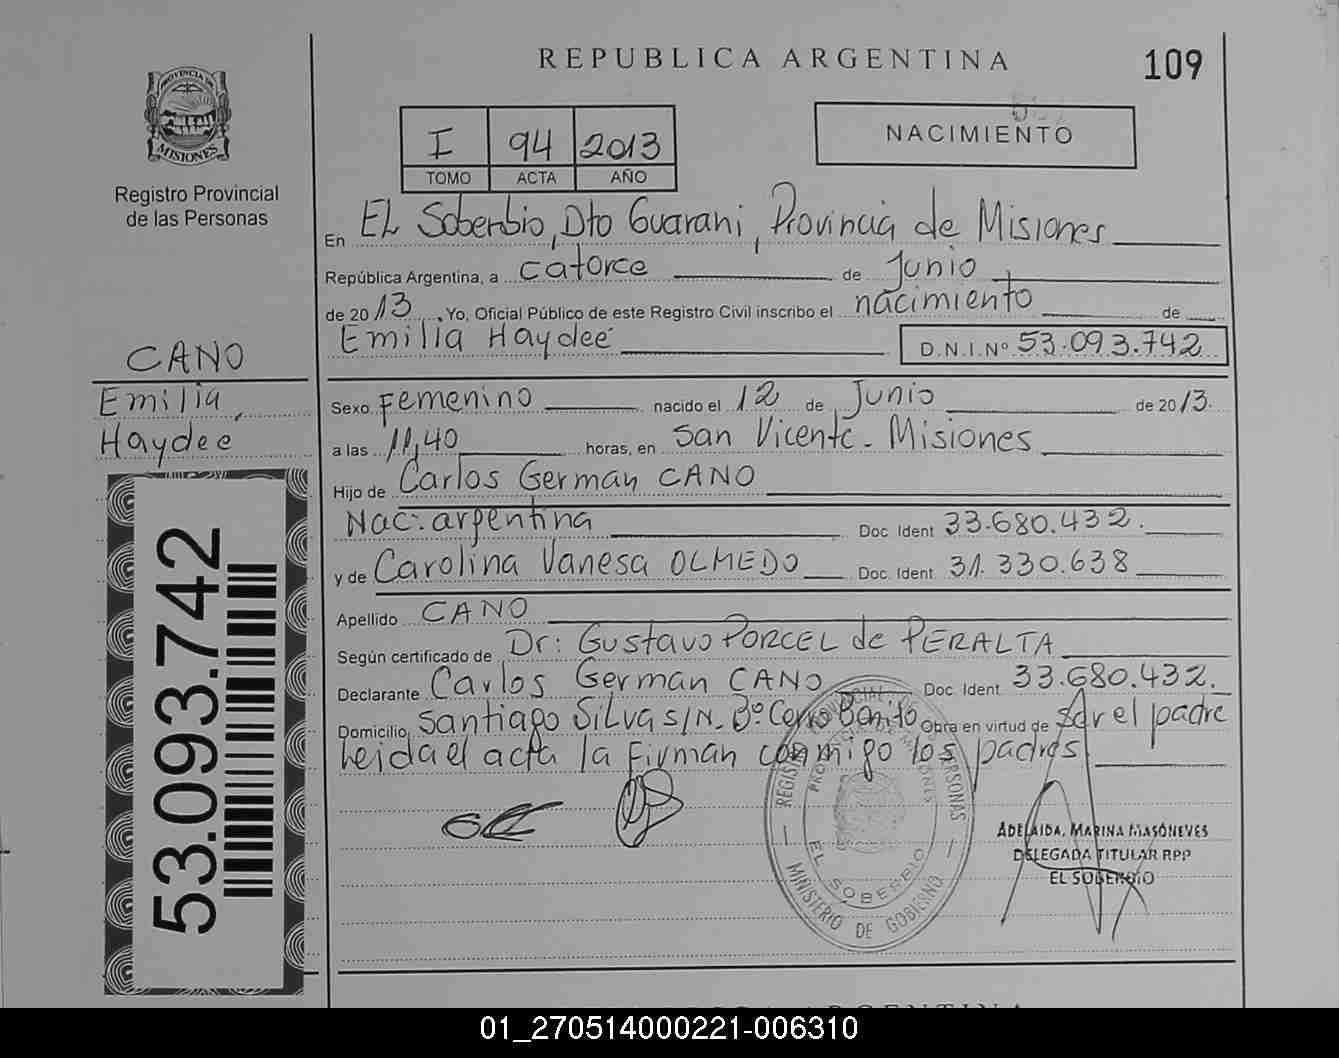 REPUBLICA ARGENTINA
109
PROVINCIA DE
MISIONES
Registro Provincial
de las Personas
I 94 2013
TOMO ACTA AÑO
NACIMIENTO
En EL Soberbio, Dto Guarani, Provincia de Misiones
República Argentina, a catorce de Junio
de 2013, Yo, Oficial Público de este Registro Civil inscribo el nacimiento de
Emilia Haydeé D.N.I.Nº 53.093.742
CANO
Emilia,
Haydee
Sexo Femenino nacido el 12 de Junio de 2013.
a las 11,40 horas, en San Vicente - Misiones
Hijo de Carlos German CANO
Nac: argentina Doc. Ident 33.680.432.
y de Carolina Vanesa OLMEDO Doc. Ident. 31.330.638
Apellido CANO
Según certificado de Dr: Gustavo PORCEL de PERALTA
Declarante Carlos German CANO Doc. Ident. 33.680.432.
Domicilio Santiago Silva S/N. Bº Cerro Bonito Obra en virtud de ser el padre
Leida el acta la Firman conmigo los padres
53.093.742
MINISTERIO DE GOBIERNO
EL SOBERBIO
ADELAIDA, MARINA MASONEVES
DELEGADA TITULAR RPP
EL SOBERBIO
01_270514000221-006310